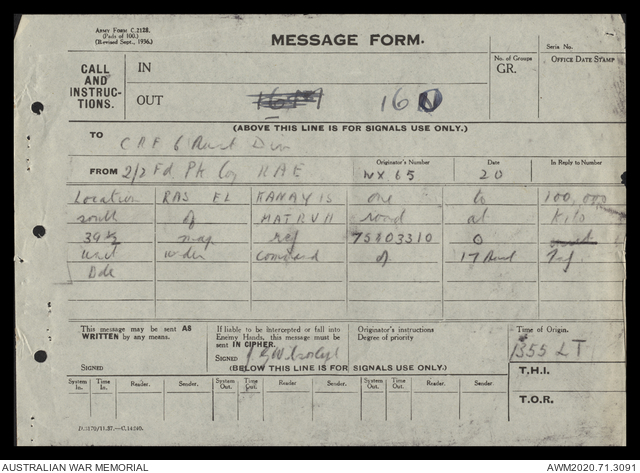 ARMY FORM C.2128.
(Pads of 100.)
(Revised Sept., 1936.)
MESSAGE FORM.
Serial No.
CALL AND INSTRUC- TIONS.
IN
No. of Groups
GR.
OFFICE DATE STAMP
OUT
16
(ABOVE THIS LINE IS FOR SIGNALS USE ONLY.)
TO
6 Aust Div
FROM 2/2 Fd Pk Coy RAE
Originator's Number
65
Date
20
In Reply to Number
Location RAS EL KANAYIS one to 100,000
south of MATRUH road at Kilo
39½ map ref 75803310 0
unit under command of 17 Aust Inf
Bde
This message may be sent AS WRITTEN by any means.
If liable to be intercepted or fall into Enemy Hands, this message must be sent IN CIPHER.
Originator's instructions
Degree of priority
Time of Origin.
1355 LT
SIGNED
SIGNED
(BELOW THIS LINE IS FOR SIGNALS USE ONLY.)
T.H.I.
System In. Time In. Reader. Sender. System Out. Time Out. Reader Sender. System Out. Time Out. Reader. Sender.
T.O.R.
AUSTRALIAN WAR MEMORIAL
AWM2020.71.3091